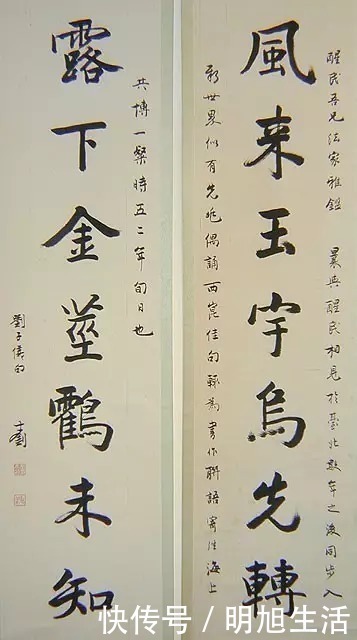 醒民吾兄法家雅鑑 曩與醒民相見於臺北數年之後同步入
風来玉宇烏先轉
新世界似有先兆偶誦西崑佳句輒為書作聯語寄往海上
共博一粲時五二年旬日也
露下金莖鸖未知
快传号 / 明旭生活